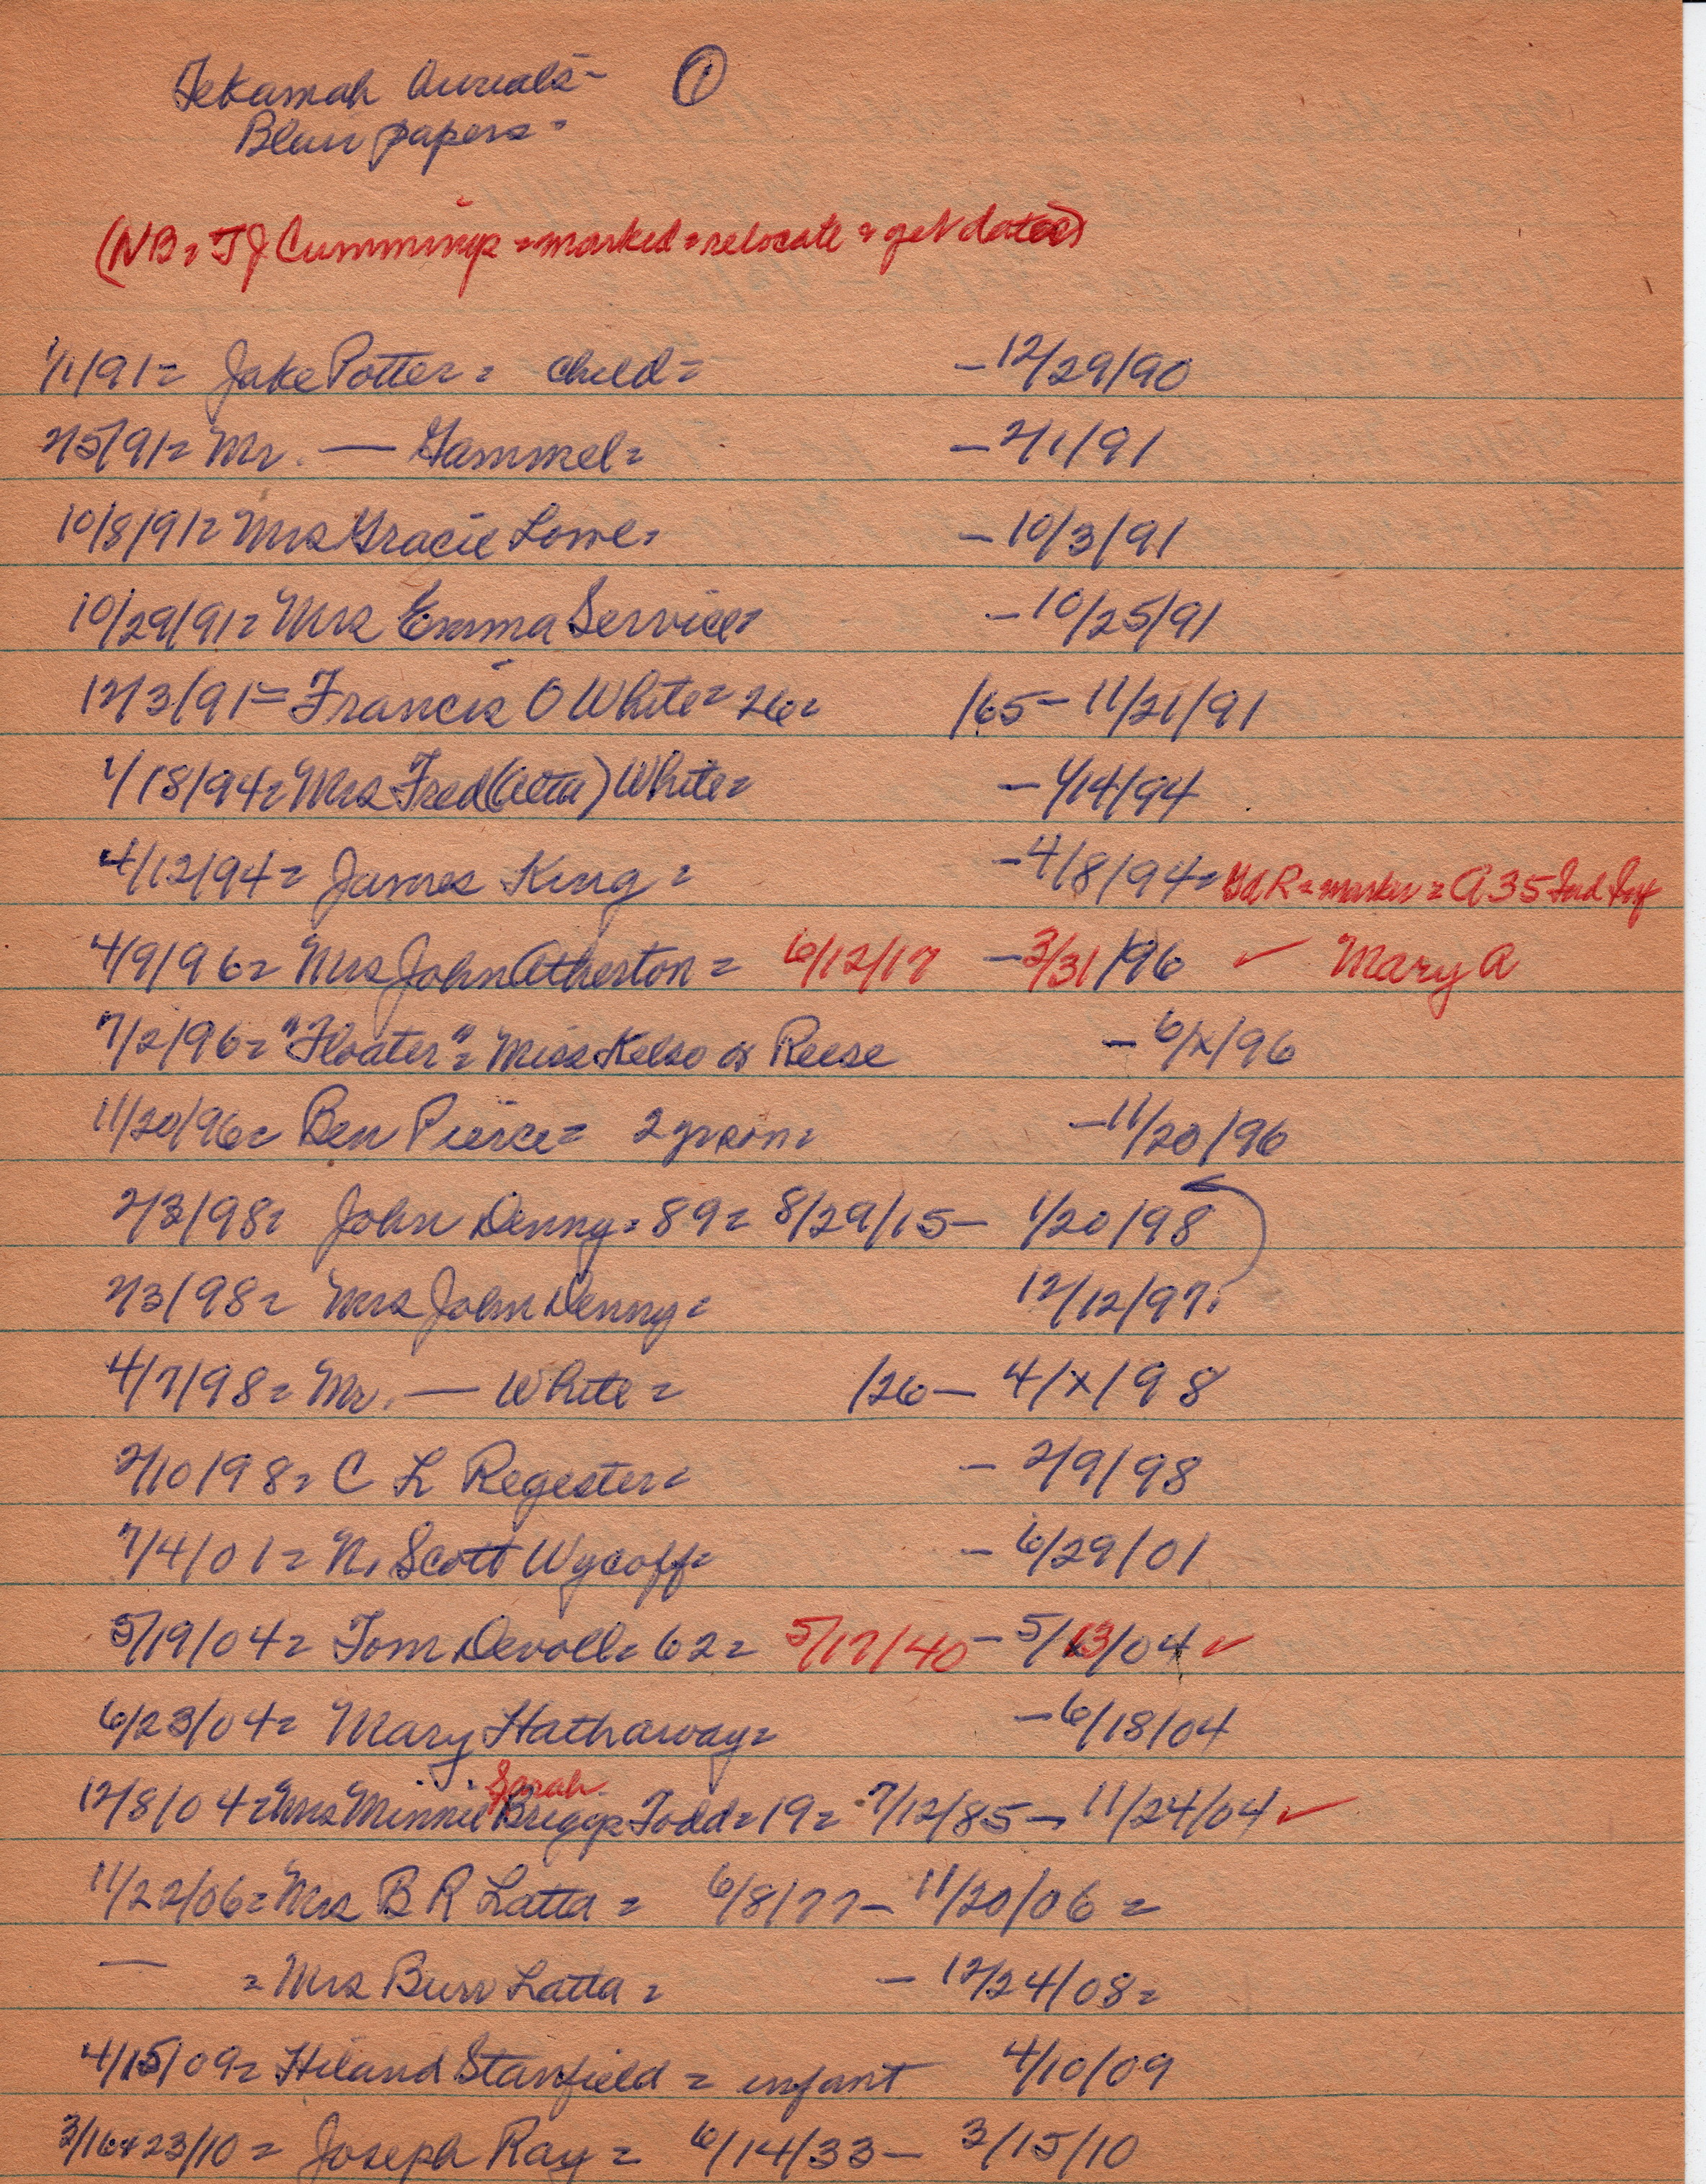 Tekamah Burials - ①
Blair papers =
(NB = T J Cummings = marked = relocate = get dates)
1/1/91 = Jake Potter = child = - 12/29/90
2/5/91 = Mr. — Gammel = - 2/1/91
10/8/91 = Mrs Gracie Lowe = - 10/3/91
10/29/91 = Mrs Emma Service = - 10/25/91
12/3/91 = Francis O White = 26 = /65 - 11/21/91
1/18/94 = Mrs Fred (Etta) White = - 1/14/94
4/12/94 = James King = - 4/8/94 = marker = A 35 Ind Inf
4/9/96 = Mrs John Atherton = 6/12/17 - 3/31/96 ✓ Mary A
7/2/96 = "Floater" = Miss Kelso or Reese - 6/x/96
11/20/96 = Ben Pierce = 2 yr son = - 11/20/96
2/3/98 = John Denny = 89 = 8/29/15 - 1/20/98
2/3/98 = Mrs John Denny = 12/12/97
4/7/98 = Mr. — White = /26 - 4/x/98
2/10/98 = C L Regester = - 2/9/98
7/4/01 = N. Scott Wycoff = - 6/29/01
5/19/04 = Tom Devoll = 62 = 5/17/40 - 5/13/04 ✓
6/23/04 = Mary Hathaway = - 6/18/04
Sarah
12/8/04 = Mrs Minnie Briggs Todd = 19 = 7/12/85 - 11/24/04 ✓
11/22/06 = Mrs B R Latta = 6/8/77 - 11/20/06 =
— = Mrs Burr Latta = - 12/24/08 =
4/15/09 = Hiland Stanfield = infant 4/10/09
3/16 & 23/10 = Joseph Ray = 6/14/33 - 3/15/10